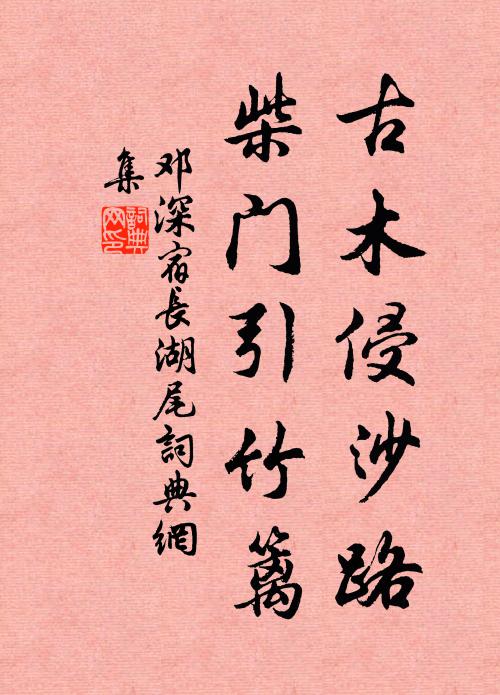 古木侵沙路
柴门引竹篱
邓深宿長湖尾詞典網
集
詞典
网印